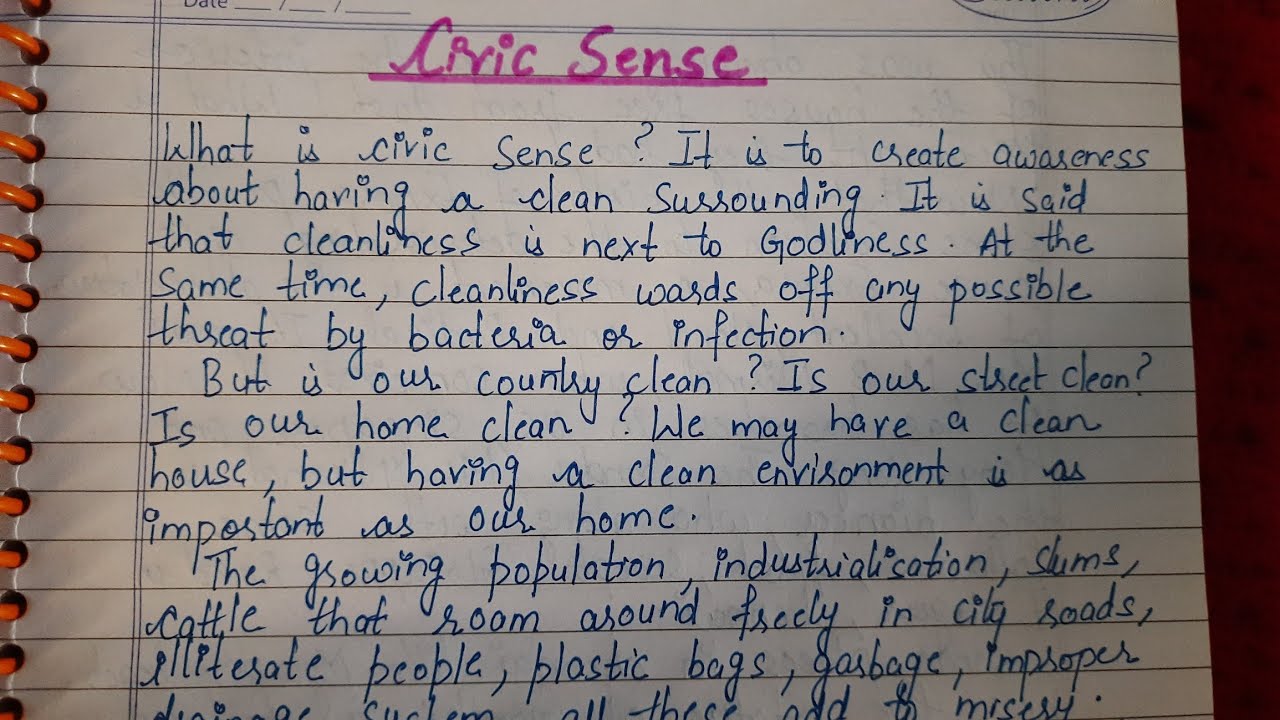 Date
Civic Sense
What is civic sense? It is to create awareness
about having a clean surrounding. It is said
that cleanliness is next to Godliness. At the
same time, cleanliness wards off any possible
threat by bacteria or infection.
But is our country clean? Is our street clean?
Is our home clean? We may have a clean
house, but having a clean environment is as
important as our home.
The growing population, industrialisation, slums,
cattle that room around freely in city roads,
illiterate people, plastic bags, garbage, improper
drainage system, all these add to misery.